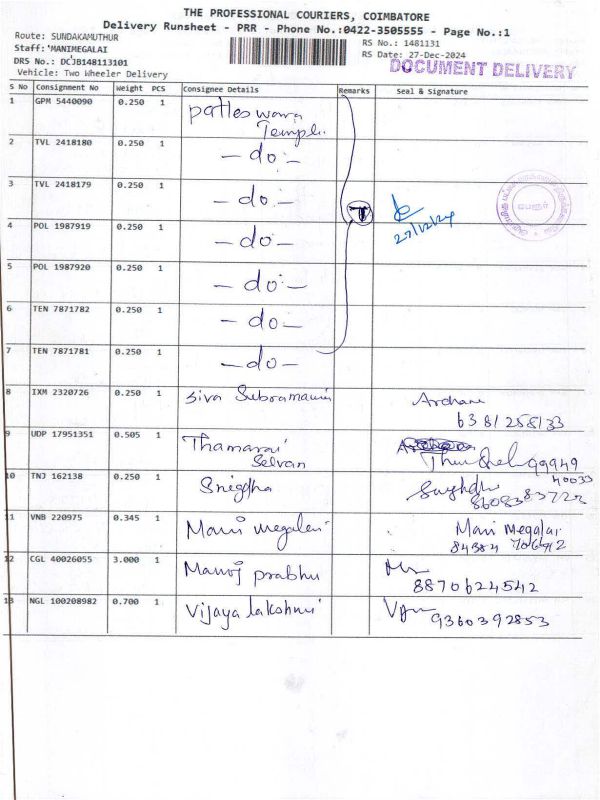 THE PROFESSIONAL COURIERS, COIMBATORE
Delivery Runsheet - PRR - Phone No.:0422-3505555 - Page No.:1
Route: SUNDAKAMUTHUR
RS No.: 1481131
Staff:'MANIMEGALAI
RS Date: 27-Dec-2024
DRS No.: DCJB148113101
DOCUMENT DELIVERY
Vehicle: Two Wheeler Delivery
S No Consignment No Weight PCS Consignee Details Remarks Seal & Signature
1 GPM 5440090 0.250 1 patteswara
Temple
2 TVL 2418180 0.250 1 - do -
3 TVL 2418179 0.250 1 - do -
27/12/24
பேரூர்
4 POL 1987919 0.250 1 - do -
5 POL 1987920 0.250 1 - do -
6 TEN 7871782 0.250 1 - do -
7 TEN 7871781 0.250 1 - do -
8 IXM 2320726 0.250 1 Siva Subramani Archana
6381258133
9 UDP 17951351 0.505 1 Thamarai
Selvan
99949
40033
10 TNJ 162138 0.250 1 Snigdha
8608383723
11 VNB 220975 0.345 1 Mani megalai Mani Megalai
84384 706912
12 CGL 40026055 3.000 1 Manoj prabhu
8870624542
13 NGL 100208982 0.700 1 Vijaya lakshmi
9360392853